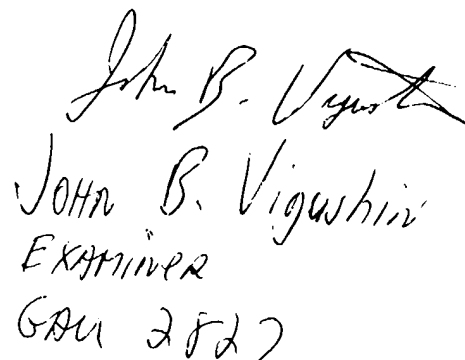 John B. Vigushin
JOHN B. Vigushin
EXAMINER
GAU 2827